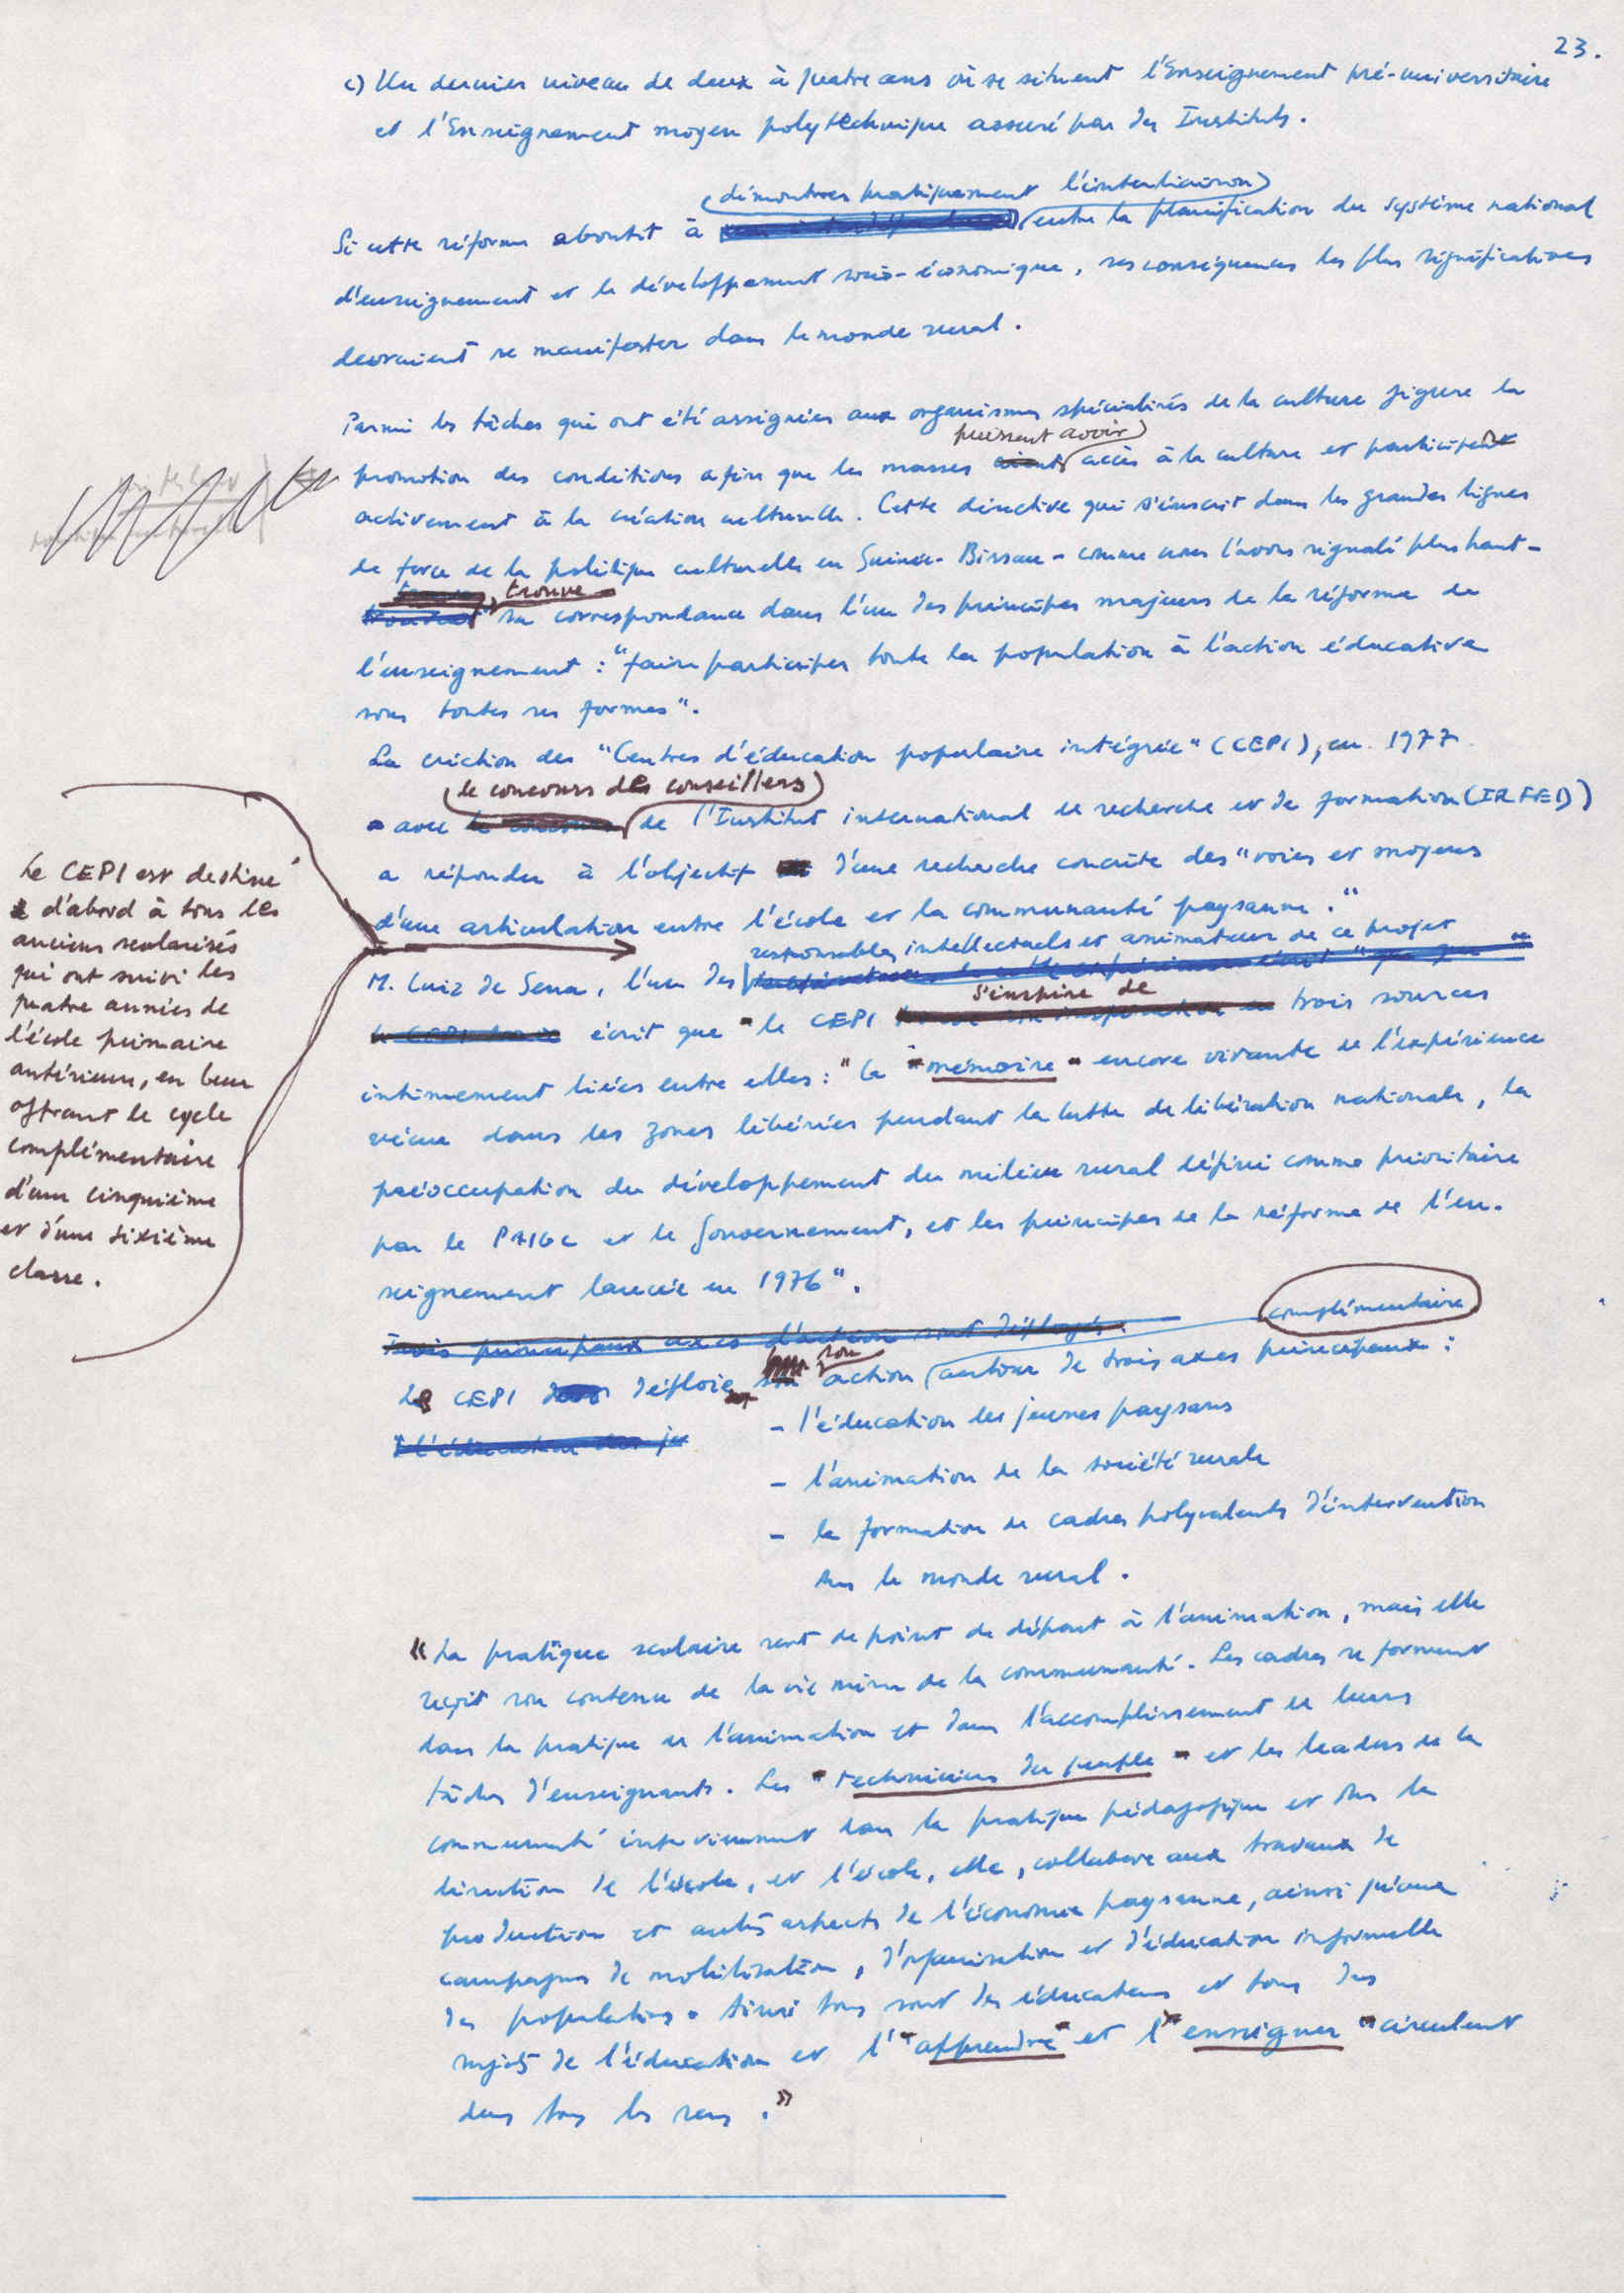 23.
c) Un dernier niveau de deux à quatre ans où se situent l'Enseignement pré-universitaire
et l'Enseignement moyen polytechnique assuré par des Instituts.
démontrer pratiquement l'interliaison
Si cette réforme aboutit à entre la planification du système national
d'enseignement et le développement socio-économique, ses conséquences les plus significatives
devraient se manifester dans le monde rural.
Parmi les tâches qui ont été assignées aux organismes spécialisés de la culture figure la
puissent avoir
promotion des conditions afin que les masses aient accès à la culture et participent
activement à la création culturelle. Cette directive qui s'inscrit dans les grandes lignes
de force de la politique culturelle en Guinée-Bissau - comme nous l'avons signalé plus haut -
trouve
sa correspondance dans l'un des principes majeurs de la réforme de
l'enseignement : "faire participer toute la population à l'action éducative
sous toutes ses formes".
La création des "Centres d'éducation populaire intégrée" (CEPI), en 1977
le concours des conseillers
- avec de l'Institut international de recherche et de formation (IRFED)
a répondu à l'objectif d'une recherche concrète des "voies et moyens
d'une articulation entre l'école et la communauté paysanne."
responsables intellectuels et animateur de ce projet
M. Luiz de Sena, l'un des
s'inspire de
écrit que "le CEPI trois sources
intimement liées entre elles : "la "mémoire" encore vivante de l'expérience
vécue dans les zones libérées pendant la lutte de libération nationale, la
préoccupation du développement du milieu rural défini comme prioritaire
par le PAIGC et le Gouvernement, et les principes de la réforme de l'en-
seignement lancée en 1976".
Trois principaux axes d'action sont déployés.
complémentaire
son
Le CEPI déploie action autour de trois axes principaux :
l'éducation des je
- l'éducation des jeunes paysans
- l'animation de la société rurale
- la formation de cadres polyvalents d'intervention
dans le monde rural.
"La pratique scolaire sert de point de départ à l'animation, mais elle
reçoit son contenu de la vie même de la communauté. Les cadres se forment
dans la pratique de l'animation et dans l'accomplissement de leurs
tâches d'enseignants. Les "techniciens du peuple" et les leaders de la
communauté interviennent dans la pratique pédagogique et dans la
direction de l'école, et l'école, elle, collabore aux travaux de
production et autres aspects de l'économie paysanne, ainsi qu'aux
campagnes de mobilisation, d'organisation et d'éducation informelle
des populations. Ainsi tous sont des éducateurs et tous des
sujets de l'éducation et l'"apprendre" et l'"enseigner" circulent
dans tous les sens."
Le CEPI est destiné
d'abord à tous les
anciens scolarisés
qui ont suivi les
quatre années de
l'école primaire
antérieure, en leur
offrant le cycle
complémentaire
d'une cinquième
et d'une sixième
classe.